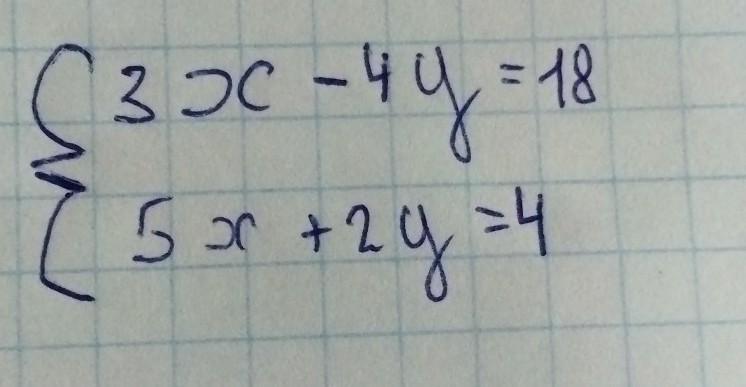 3x - 4y = 18
5x + 2y = 4